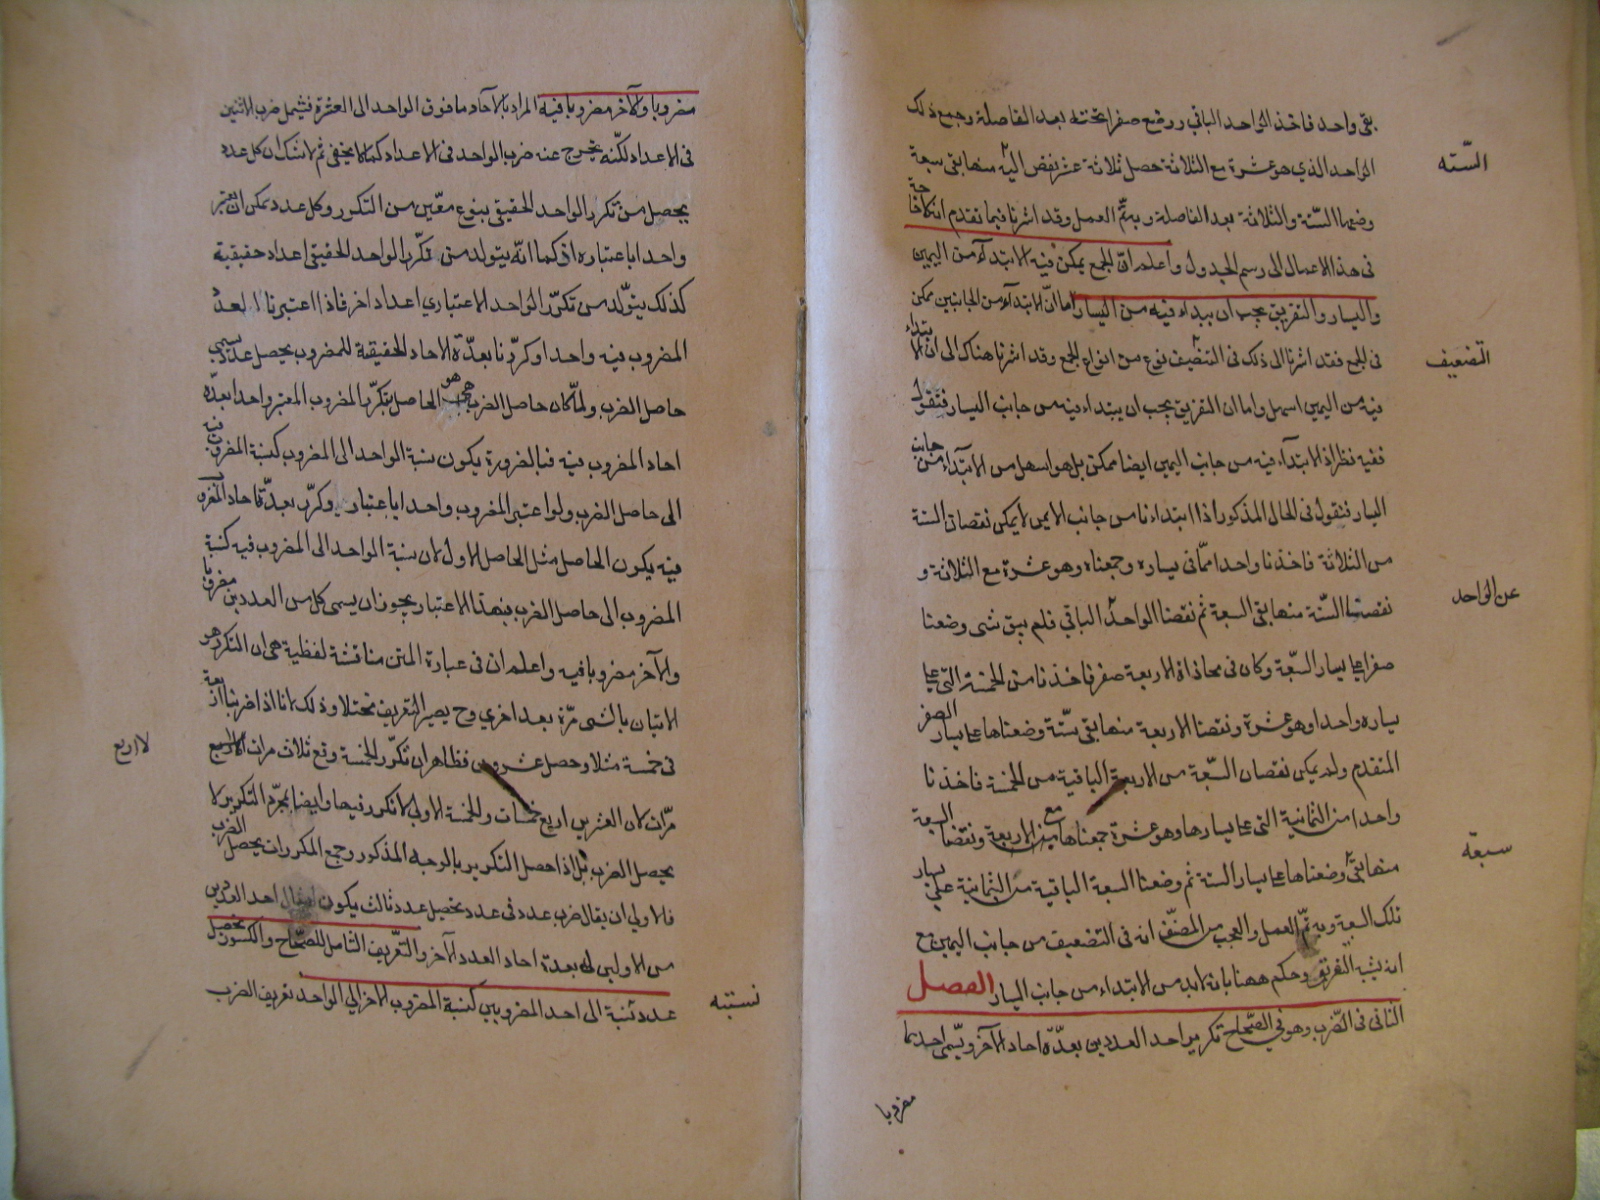 بقى واحد فاخذ الواحد الباقى ووضع صفرا تحته بعد الفاصلة وجمع ذلك
الواحد الذي هو عشرة مع الثلاثة حصل ثلاثة عشر نقص الستة منها بقى سبعة
وضعها الستة والثلاثة بعد الفاصلة ويتم العمل وقد اشرنا فيما تقدم
فى هذا الاعمال الى رسم الجدول واعلم ان الجمع يمكن فيه الابتداء من اليمين
واليسار والتفريق يجب ان يبداء فيه من اليسار اما ان الابتداء من الجانبين ممكن
فى الجمع فقد اشرنا الى ذلك فى التضعيف نوع من انواع الجمع وقد اشرنا هناك الى ان الابتداء
فيه من اليمين اسهل واما ان التفريق يجب ان يبتداء فيه من جانب اليسار فنقول
ففيه نظر اذ الابتداء فيه من جانب اليمين ايضا ممكن بل هو اسهل من الابتداء من جانب
اليسار فنقول فى المثال المذكور اذا ابتدانا من جانب الايمن لا يمكن نقصان الستة
من الثلاثة فاخذنا واحدا مما فى يساره وجمعناه وهو عشرة مع الثلاثة و
نقصنا الستة منها بقى السبعة ثم نقصنا الواحد الباقي فلم يبق شى وضعنا
صفرا على يسار السبعة وكان فى محاذاة الاربعة صفر فاخذنا من الخمسة التى على
يساره واحدا وهو عشرة ونقصنا الاربعة منها بقى ستة وضعناها على يسار الصفر
المتقدم ولم يمكن نقصان السبعة من الاربعة الباقية من الخمسة فاخذنا
واحدا من الثمانية التى على يسارها وهو عشرة جمعناها مع الاربعة ونقصنا السبعة
منها بقى وضعناها على يسار الستة ثم وضعنا السبعة الباقية من الثمانية على يسار
تلك السبعة ويتم العمل والعجب من المصنف انه فى التضعيف من جانب اليمين مع
انه يشبه التفريق وحكم ههنا بانه لابد من الابتداء من جانب اليسار الفصل
الثانى فى الضرب وهو في الصحاح تكرير احد العددين بعدة احاد الآخر ويسمى احدهما
مضروبا
الستة
التضعيف
عن الواحد
سبعة
مضروبا والآخر مضروبا فيه المراد بالآحاد ما فوق الواحد الى العشرة فيشمل ضرب الاثنين
فى الاعداد لكنه يخرج عنه ضرب الواحد فى الاعداد كما لا يخفى ثم لا شك ان كل عدد
يحصل من تكرر الواحد الحقيقى بنوع معين من التكرر وكل عدد يمكن ان يعتبر
واحدا باعتباره اذ كما انه يتولد من تكرر الواحد الحقيقى اعداد حقيقية
كذلك يتولد من تكرر الواحد الاعتباري اعداد اخر فاذا اعتبرنا العدد
المضروب فيه واحدا وكررنا بعدة الاحاد الحقيقية للمضروب يحصل عدد يسمى
حاصل الضرب ولما كان حاصل الضرب هو الحاصل بتكرر المضروب المعتبر واحدا بعدة
احاد المضروب فيه فبالضرورة يكون نسبة الواحد الى المضروب كنسبة المضروب فيه
الى حاصل الضرب ولو اعتبر المضروب واحدا باعتبار وكرر بعدة احاد المضروب
فيه يكون الحاصل مثل الحاصل الاول لان نسبة الواحد الى المضروب فيه كنسبة
المضروب الى حاصل الضرب فبهذا الاعتبار يجوز ان يسمى كل من العددين مضروبا
والآخر مضروبا فيه واعلم ان فى عبارة المتن مناقشة لفظية هى ان التكرر هو
الاتيان بالشى مرة بعد اخري وح يصير التعريف مختلا وذلك لانا اذا ضربنا اربعة
فى خمسة مثلا وحصل عشرون فظاهر ان تكرر الخمسة وقع ثلاث مرات
مرات لان العشرين اربع خمسات والخمسة الاولى لا تكرر فيها وايضا بمجرد التكرير لا
يحصل الضرب بل اذا حصل التكرير بالوجه المذكور وجمع المكررات يحصل الضرب
فالاولى ان يقال ضرب عدد فى عدد تحصيل عدد ثالث يكون احد العددين
من الاولين له بعدة احاد العدد الآخر والتعريف الشامل للصحاح والكسور تحصيل
عدد نسبته الى احد المضروبين كنسبة المضروب الاخر الى الواحد تعريف الضرب
لا اربع
نسبته